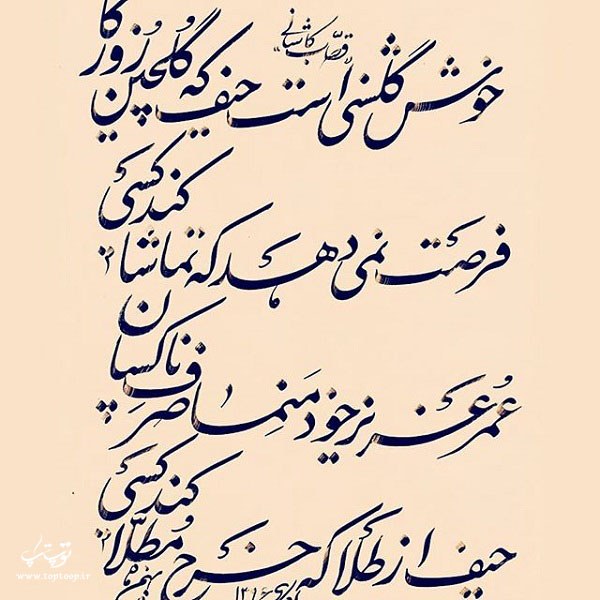 قصّاب کاشانی
خوش گلشنی است حیف که گلچین روزگا
فرصت نمی دهد که تماشا کند کسی
عمر عزیز خود منما صرف ناکسان
حیف از طلا که خرج مُطلّا کند کسی
www.toptoop.ir